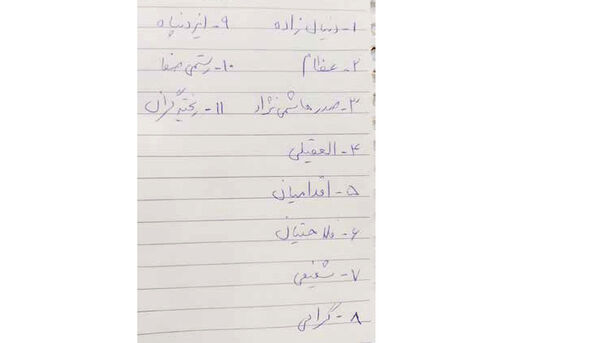 ۱- دنیال زاده
۲- عظام
۳- صدرهاشمی نژاد
۴- العقیلی
۵- اقدامیان
۶- فلاحتیان
۷- شفیعی
۸- گرامی
۹- ایزدپناه
۱۰- رستمی صفا
۱۱- ریخته گران